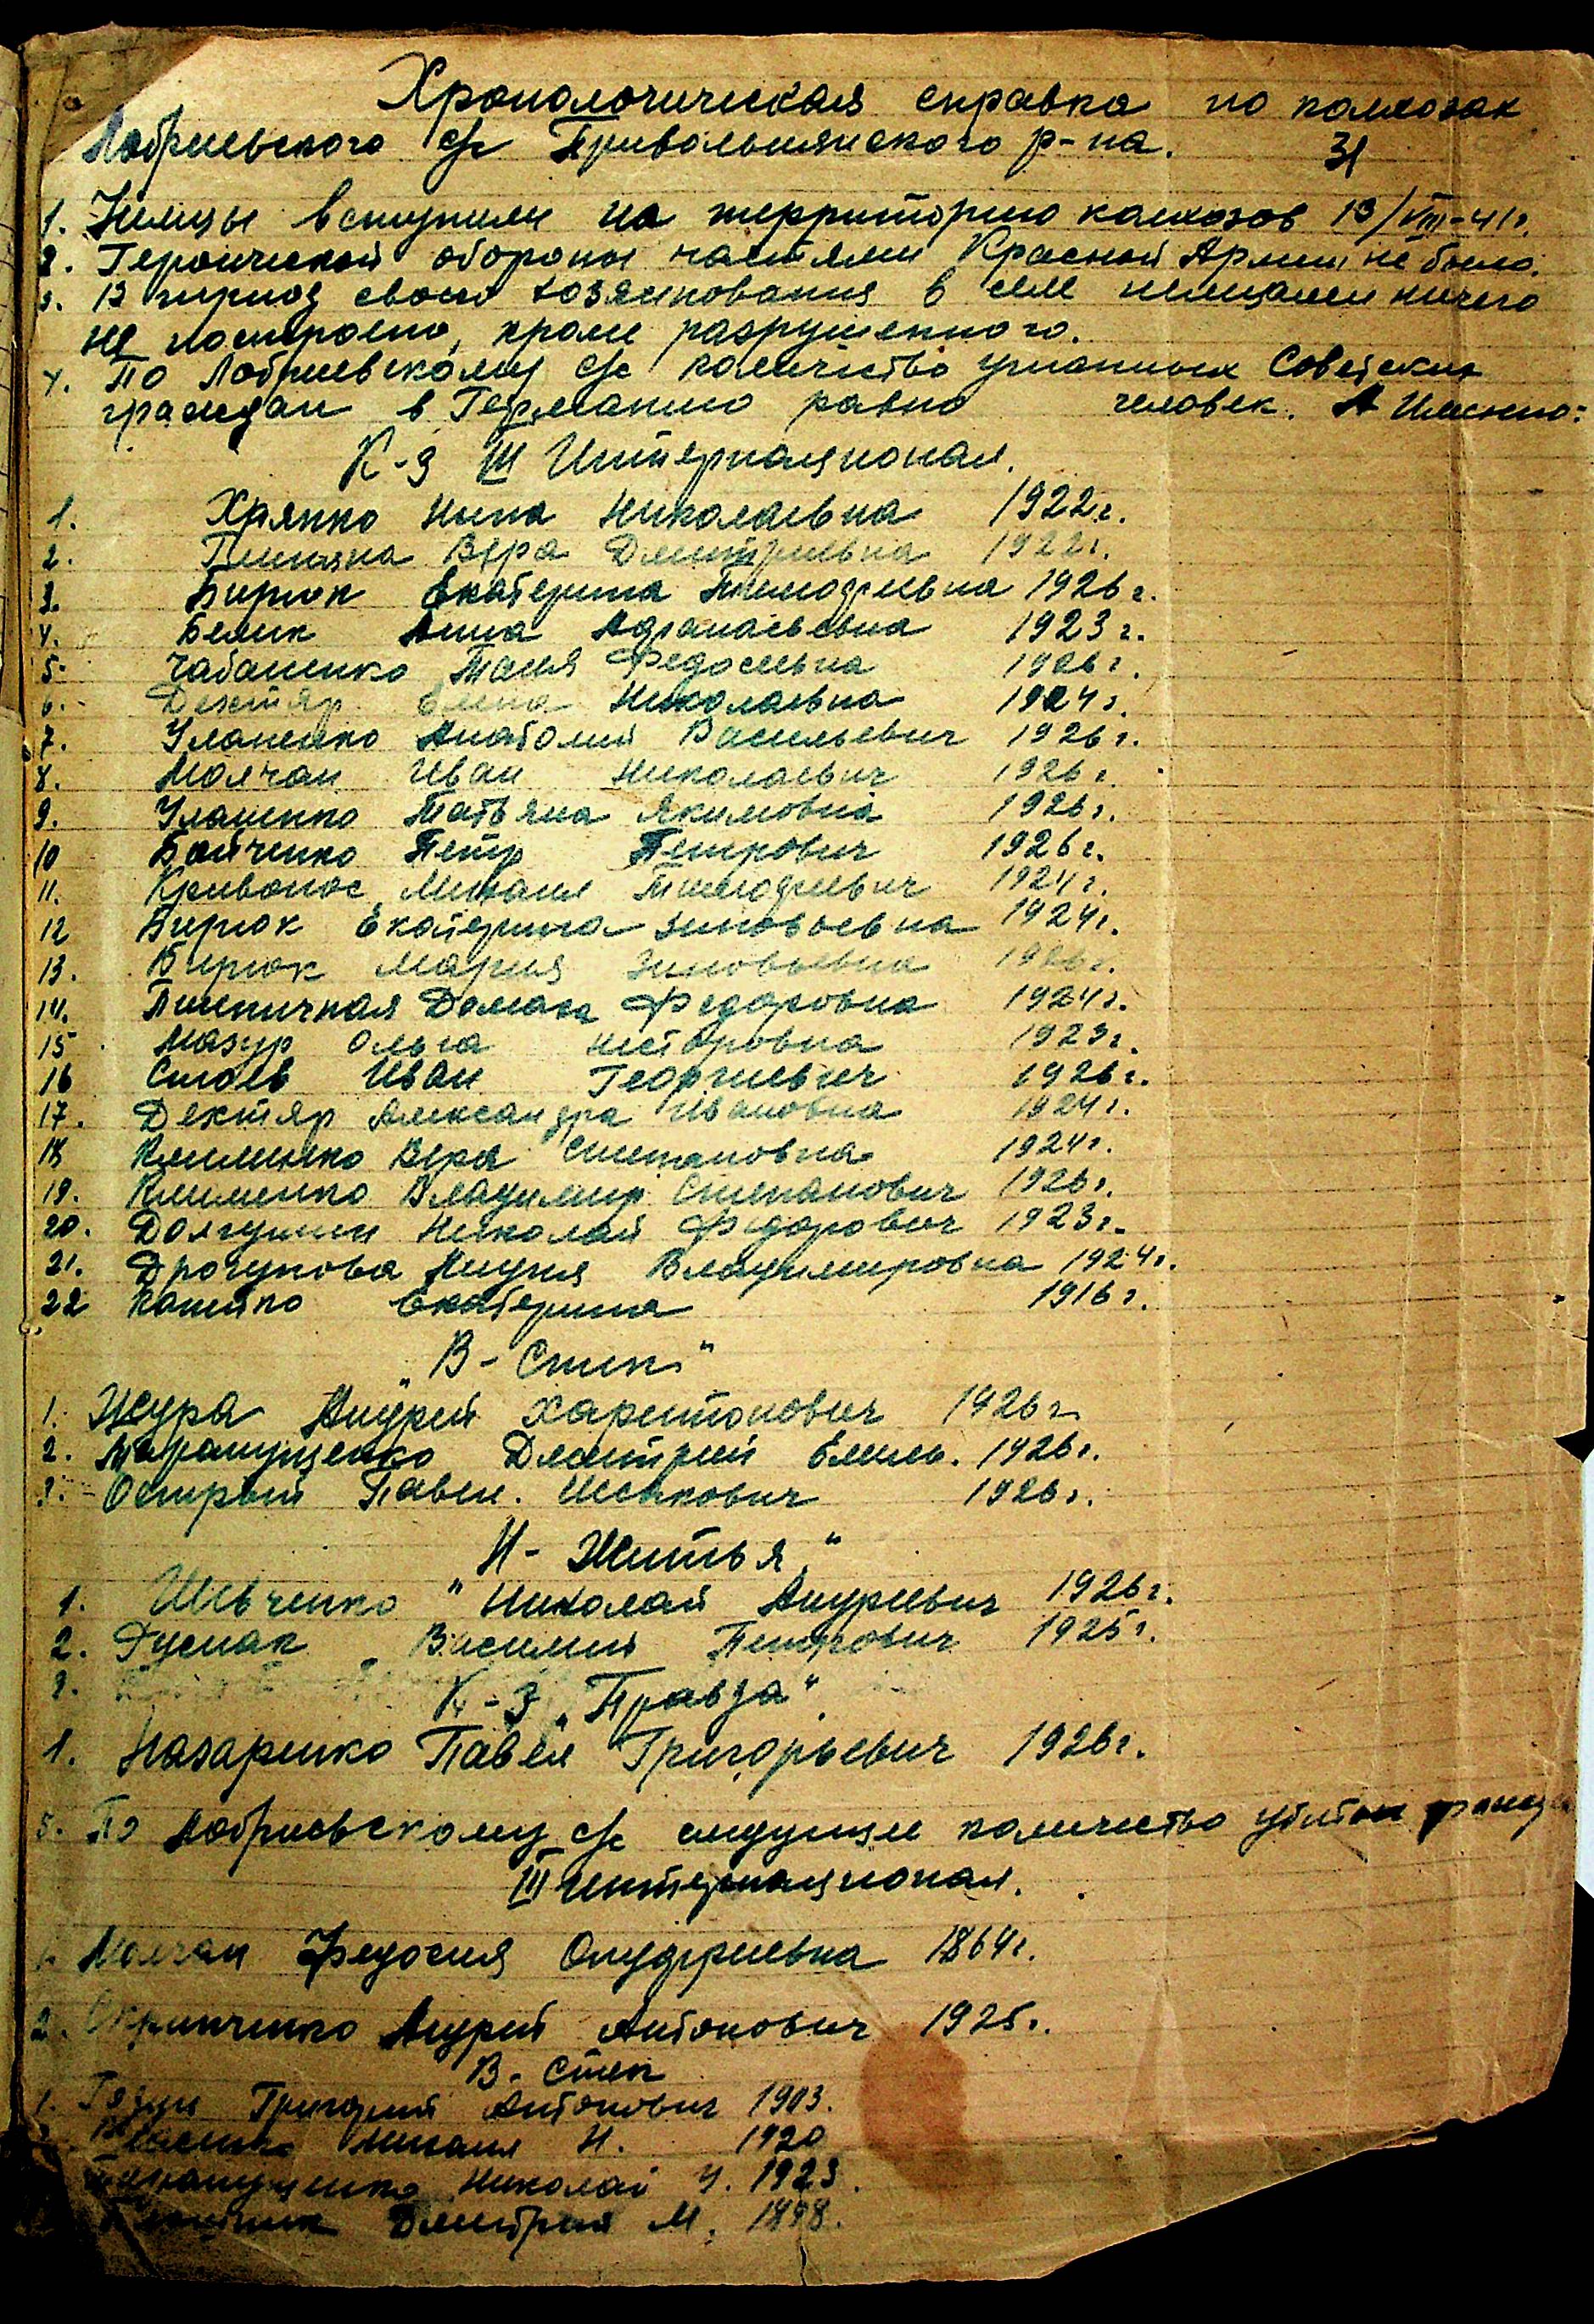 Хронологическая справка по колхозах
Лобриевского с/с Привольнянского р-на. 31
1. Немцы вступили на территорию колхозов 13/VIII-41г.
2. Героической обороны частями Красной Армии не было.
3. В период своего хозяйнования в селе немцами ничего
не построено, кроме разрушенного.
4. По Лобриевскому с/с количество угнанных Советских
граждан в Германию равно человек. А именно:
К-з III Интернационал.
1. Хряпко Нина Николаевна 1922г.
2. Вера Дмитриевна 1922г.
3. Бирюк Екатерина Тимофеевна 1926г.
4. Белик Анна Афанасьевна 1923г.
5. Чабаненко Таня Федосеевна 1926г.
6. Дехтяр Елена Николаевна 1924г.
7. Уланенко Анатолий Васильевич 1926г.
8. Молчан Иван Николаевич 1926г.
9. Уланенко Татьяна Якимовна 1926г.
10 Бойченко Петр Петрович 1926г.
11. Кривонос Михаил Тимофеевич 1924г.
12 Бирюк Екатерина Зиновьевна 1924г.
13. Бирюк Мария Зиновьевна 1926г.
14. Пшеничная Домаха Федоровна 1924г.
15 Мазур Ольга Несторовна 1923г.
16 Стоев Иван Георгиевич 1926г.
17. Дехтяр Александра Ивановна 1924г.
18 Клименко Вера Степановна 1924г.
19. Клименко Владимир Степанович 1926г.
20. Долгушин Николай Федорович 1923г.
21. Дрочукова Лидия Владимировна 1924г.
22 Екатерина 1916г.
„В-Степ"
1. Жура Андрей Харитонович 1926г.
2. Тарапущенко Дмитрий Емель. 1926г.
3. Острый Павел. Исакович 1926г.
„Н-Життья"
1. Шевченко Николай Андреевич 1926г.
2. Гуснак Василий Петрович 1925г.
3.
К-з „Правда"
1. Назаренко Павел Григорьевич 1926г.
5. По Лобриевскому с/с следующее количество убитых
III Интернационал.
1. Молчан Федосия Онуфриевна 1864г.
2. Скрипченко Андрей Антонович 1925г.
В-Степ
1. Григорий Антонович 1903.
Михаил Н. 1920
Тарапущенко Николай 1923.
Дмитрий М. 1898.